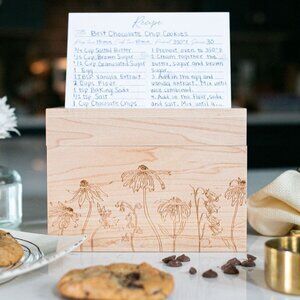 Recipe
Best Chocolate Chip Cookies
350°F 30
3/4 Cup Salted Butter 1 Preheat oven to 350°F
Cup Brown Sugar 2 Cream together the
Cup Granulated Sugar butter, sugar and brown
1 Egg sugar
Vanilla Extract 3 Add in the egg and
2 Cups Flour vanilla extract. Mix until
1 tsp Baking Soda
1/2 tsp Salt 4 Add in the flour, soda
1 Cup Chocolate Chips and salt. Mix until